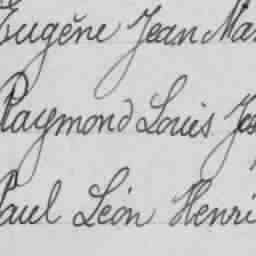 Eugène Jean Mar
Raymond Louis Jos
Paul Léon Henri